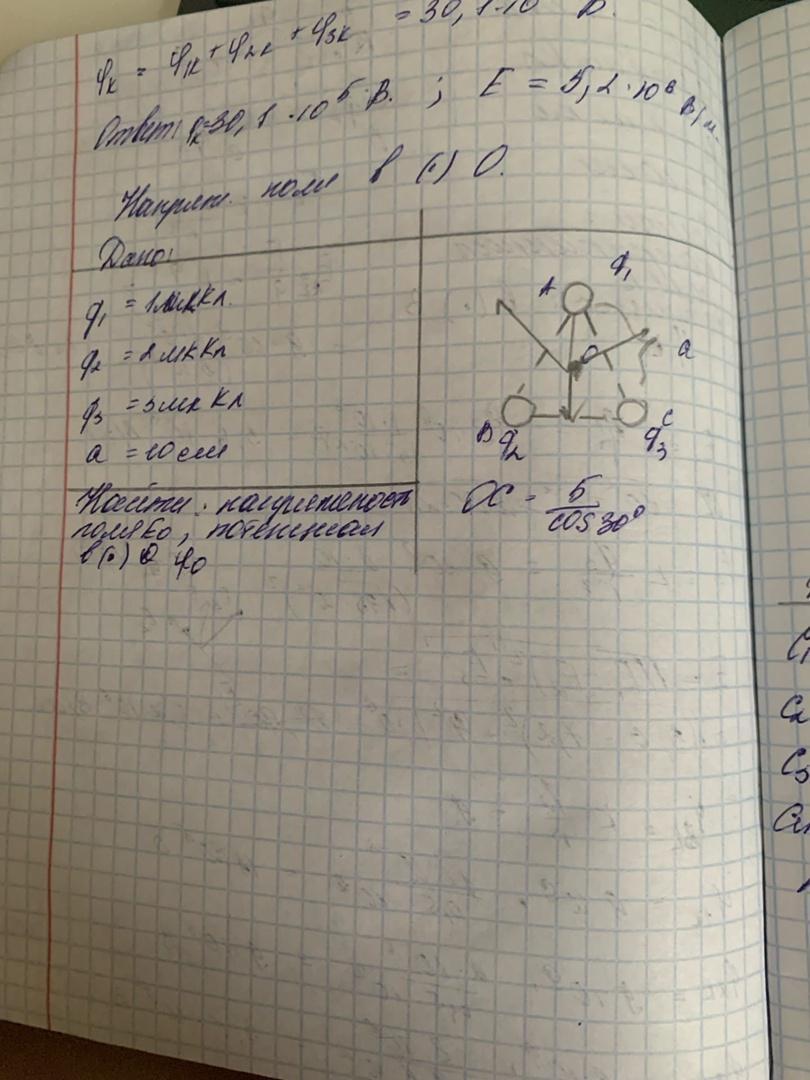 φк = φ1к + φ2к + φ3к = 30,1·10 В.
Ответ: φк=30,1·10⁵ В. ; E = 5,2·10⁶ В/м.
Напряж. поля в (·) O.
Дано:
q1 = 1мкКл.
q2 = 2мкКл
q3 = 3мкКл
a = 10см
Найти: напряженость
поля E0, потенциал
в (·) O φ0
A q1
O a
B q2
C q3
OC = 5/cos30°
C1
C2
C3